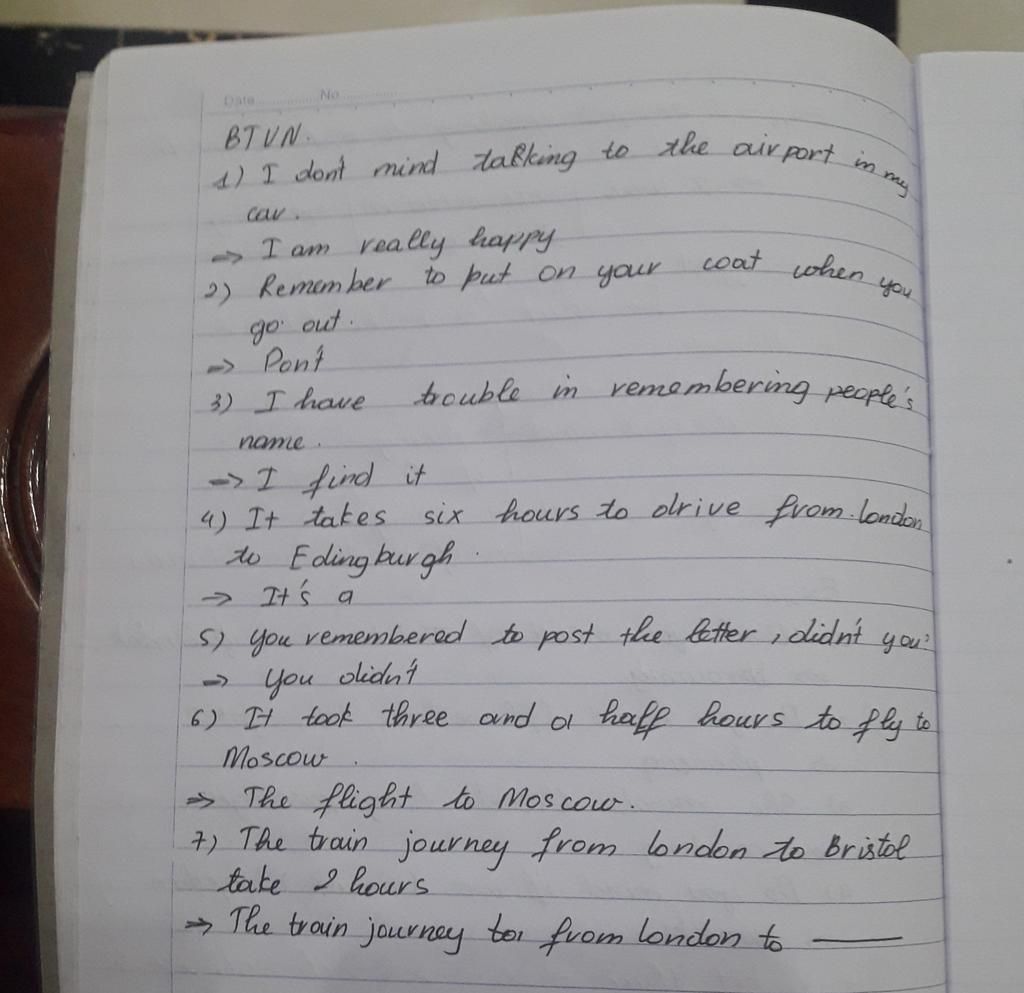 Date No
BTVN.
1) I don't mind talking to the airport in my
car.
=> I am really happy
2) Remember to put on your coat when you
go out.
=> Don't
3) I have trouble in remembering people's
name.
=> I find it
4) It takes six hours to drive from london
to Edingburgh.
=> It's a
5) you remembered to post the letter, didn't you?
=> you didn't
6) It took three and a half hours to fly to
Moscow.
=> The flight to Moscow.
7) The train journey from london to Bristol
take 2 hours
=> The train journey from london to